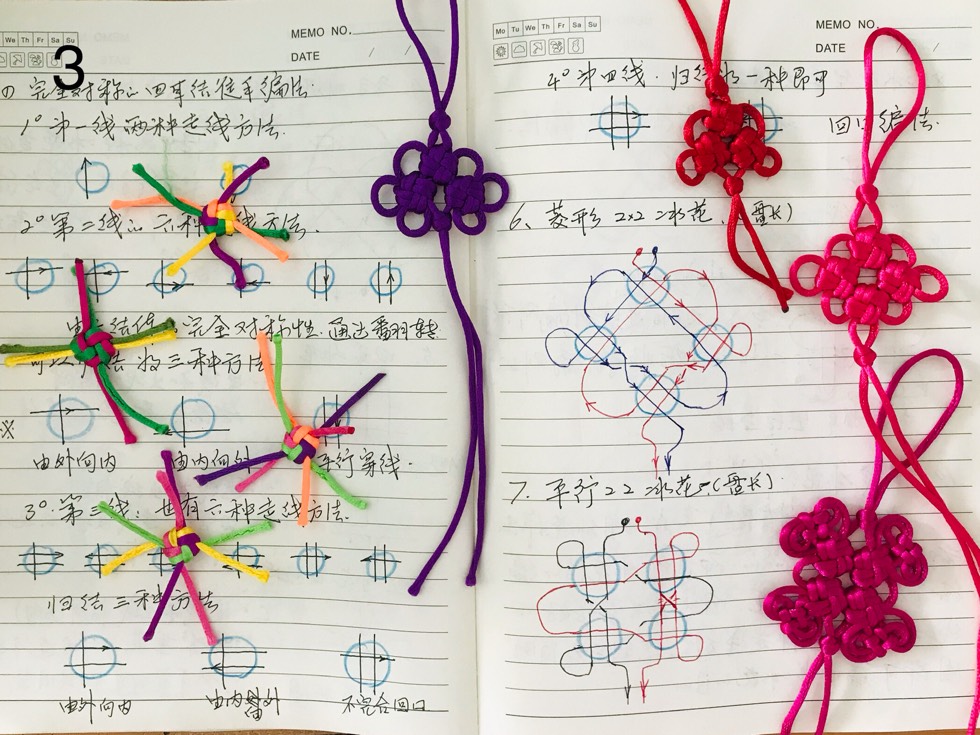 We Th Fr Sa Su
MEMO NO.
DATE / /
3
完全对称心四耳结徒手编法
1° 第一线两种走线方法.
2° 第二线心六种 线方法.
完全对称性.通过翻转
三种方法
※
由外向内 由内向外 平行穿线.
3°. 第三线: 也有六种走线方法.
归结三种方法
由外向内 由内 外 不完合回口
Mo Tu We Th Fr Sa Su
MEMO NO.
DATE / /
4° 第四线. 归结 一种即可
回口编法.
6、菱形 2×2 二冰花.(雷长)
7. 平行 2 2 二冰花.(雷长)